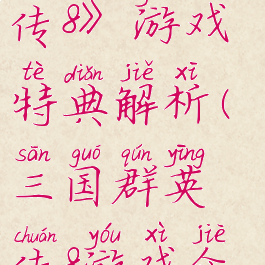 传8》 游戏
tè diǎn jiě xī
特典解析(
sān guó qún yīng
三国群英
chuán yóu xì jiè
传8游戏介